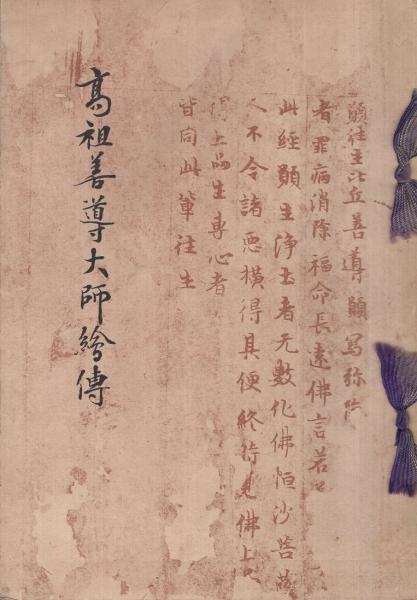 願往生比丘善導願寫弥陀
者罪病消除福命長遠佛言若
此經願生淨土者无數化佛恒沙菩薩
人不令諸惡横得其便終時見佛上
上品生專心者
皆同此輩往生
高祖善導大師繪傳